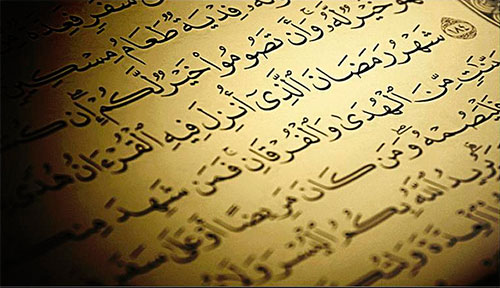 سَفَرٍ فَعِدَّةٌ
فِدْيَةٌ طَعَامُ مِسْكِينٍ
هُوَ خَيْرٌ لَّهُۥ وَأَن تَصُومُوا۟ خَيْرٌ لَّكُمْ إِن كُنتُ
١٨٤ شَهْرُ رَمَضَانَ ٱلَّذِىٓ أُنزِلَ فِيهِ ٱلْقُرْءَانُ هُدًى
مِّنَ ٱلْهُدَىٰ وَٱلْفُرْقَانِ فَمَن شَهِدَ مِنكُ
يَصُمْهُ وَمَن كَانَ مَرِيضًا أَوْ عَلَىٰ سَفَرٍ
يُرِيدُ ٱللَّهُ بِكُمُ ٱلْيُسْرَ وَلَا
ٱلْعِدَّةَ